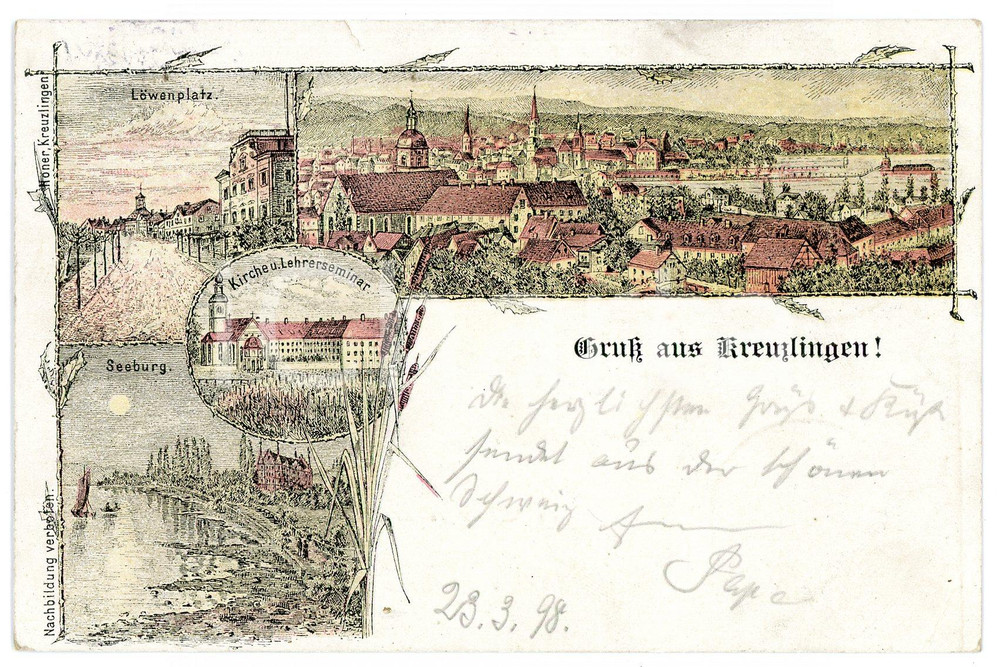 Löwenplatz.
Kirche u. Lehrerseminar
Seeburg.
Nachbildung verboten.
Höner, Kreuzlingen
Gruß aus Kreuzlingen!
Die herzlichsten Grüße & Küße
sendet aus der schönen
Schweiz
Papa
23.3.98.